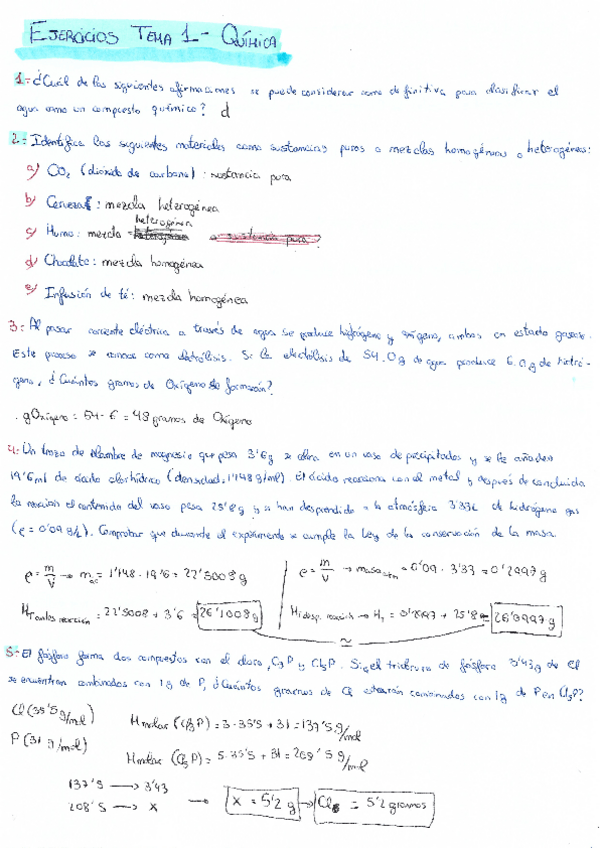 EJERCICIOS TEMA 1.- QUÍMICA
1.- ¿Cuál de las siguientes afirmaciones se puede considerar como definitiva para clasificar el
agua como un compuesto químico? d
2.- Identifica los siguientes materiales como sustancias puras o mezclas homogéneas o heterogéneas:
a) CO₂ (dióxido de carbono) : sustancia pura
b) Cerveza : mezcla heterogénea
c) Humo : mezcla heterogénea
d) Chocolate : mezcla homogénea
e) Infusión de té : mezcla homogénea
3.- Al pasar corriente eléctrica a través de agua se produce hidrógeno y oxígeno, ambos en estado gaseoso.
Este proceso se conoce como electrólisis. Si la electrólisis de 54.0 g de agua produce 6.0 g de hidró-
geno, ¿Cuántos gramos de Oxígeno se formarán?
. gOxígeno = 54 - 6 = 48 gramos de Oxígeno
4.- Un trozo de alambre de magnesio que pesa 3'6 g se coloca en un vaso de precipitados y se le añaden
19'6 ml de ácido clorhídrico (densidad: 1'148 g/ml). El ácido reacciona con el metal y después de concluida
la reacción el contenido del vaso pesa 25'8 g y se han desprendido a la atmósfera 3'33 L de hidrógeno gas
(ρ = 0'09 g/L). Comprobar que durante el experimento se cumple la Ley de la conservación de la masa.
ρ = m/V → m ac = 1'148 · 19'6 = 22'5008 g
ρ = m/V → masa = 0'09 · 3'33 = 0'2997 g
antes reacción = 22'5008 + 3'6 = 26'1008 g
desp. reacción → = 0'2997 + 25'8 = 26'0997 g
≃
5.- El fósforo forma dos compuestos con el cloro, Cl₃P y Cl₅P. Si en el tricloruro de fósforo 3'43 g de Cl
se encuentran combinados con 1 g de P, ¿Cuántos gramos de Cl estarán combinados con 1 g de P en Cl₅P?
Cl (35'5 g/mol)
P (31 g/mol)
Mmolar (Cl₃P) = 3 · 35'5 + 31 = 137'5 g/mol
Mmolar (Cl₅P) = 5 · 35'5 + 31 = 208'5 g/mol
137'5 → 3'43
208'5 → x
→ x = 5'2 g → Cl₅ = 5'2 gramos